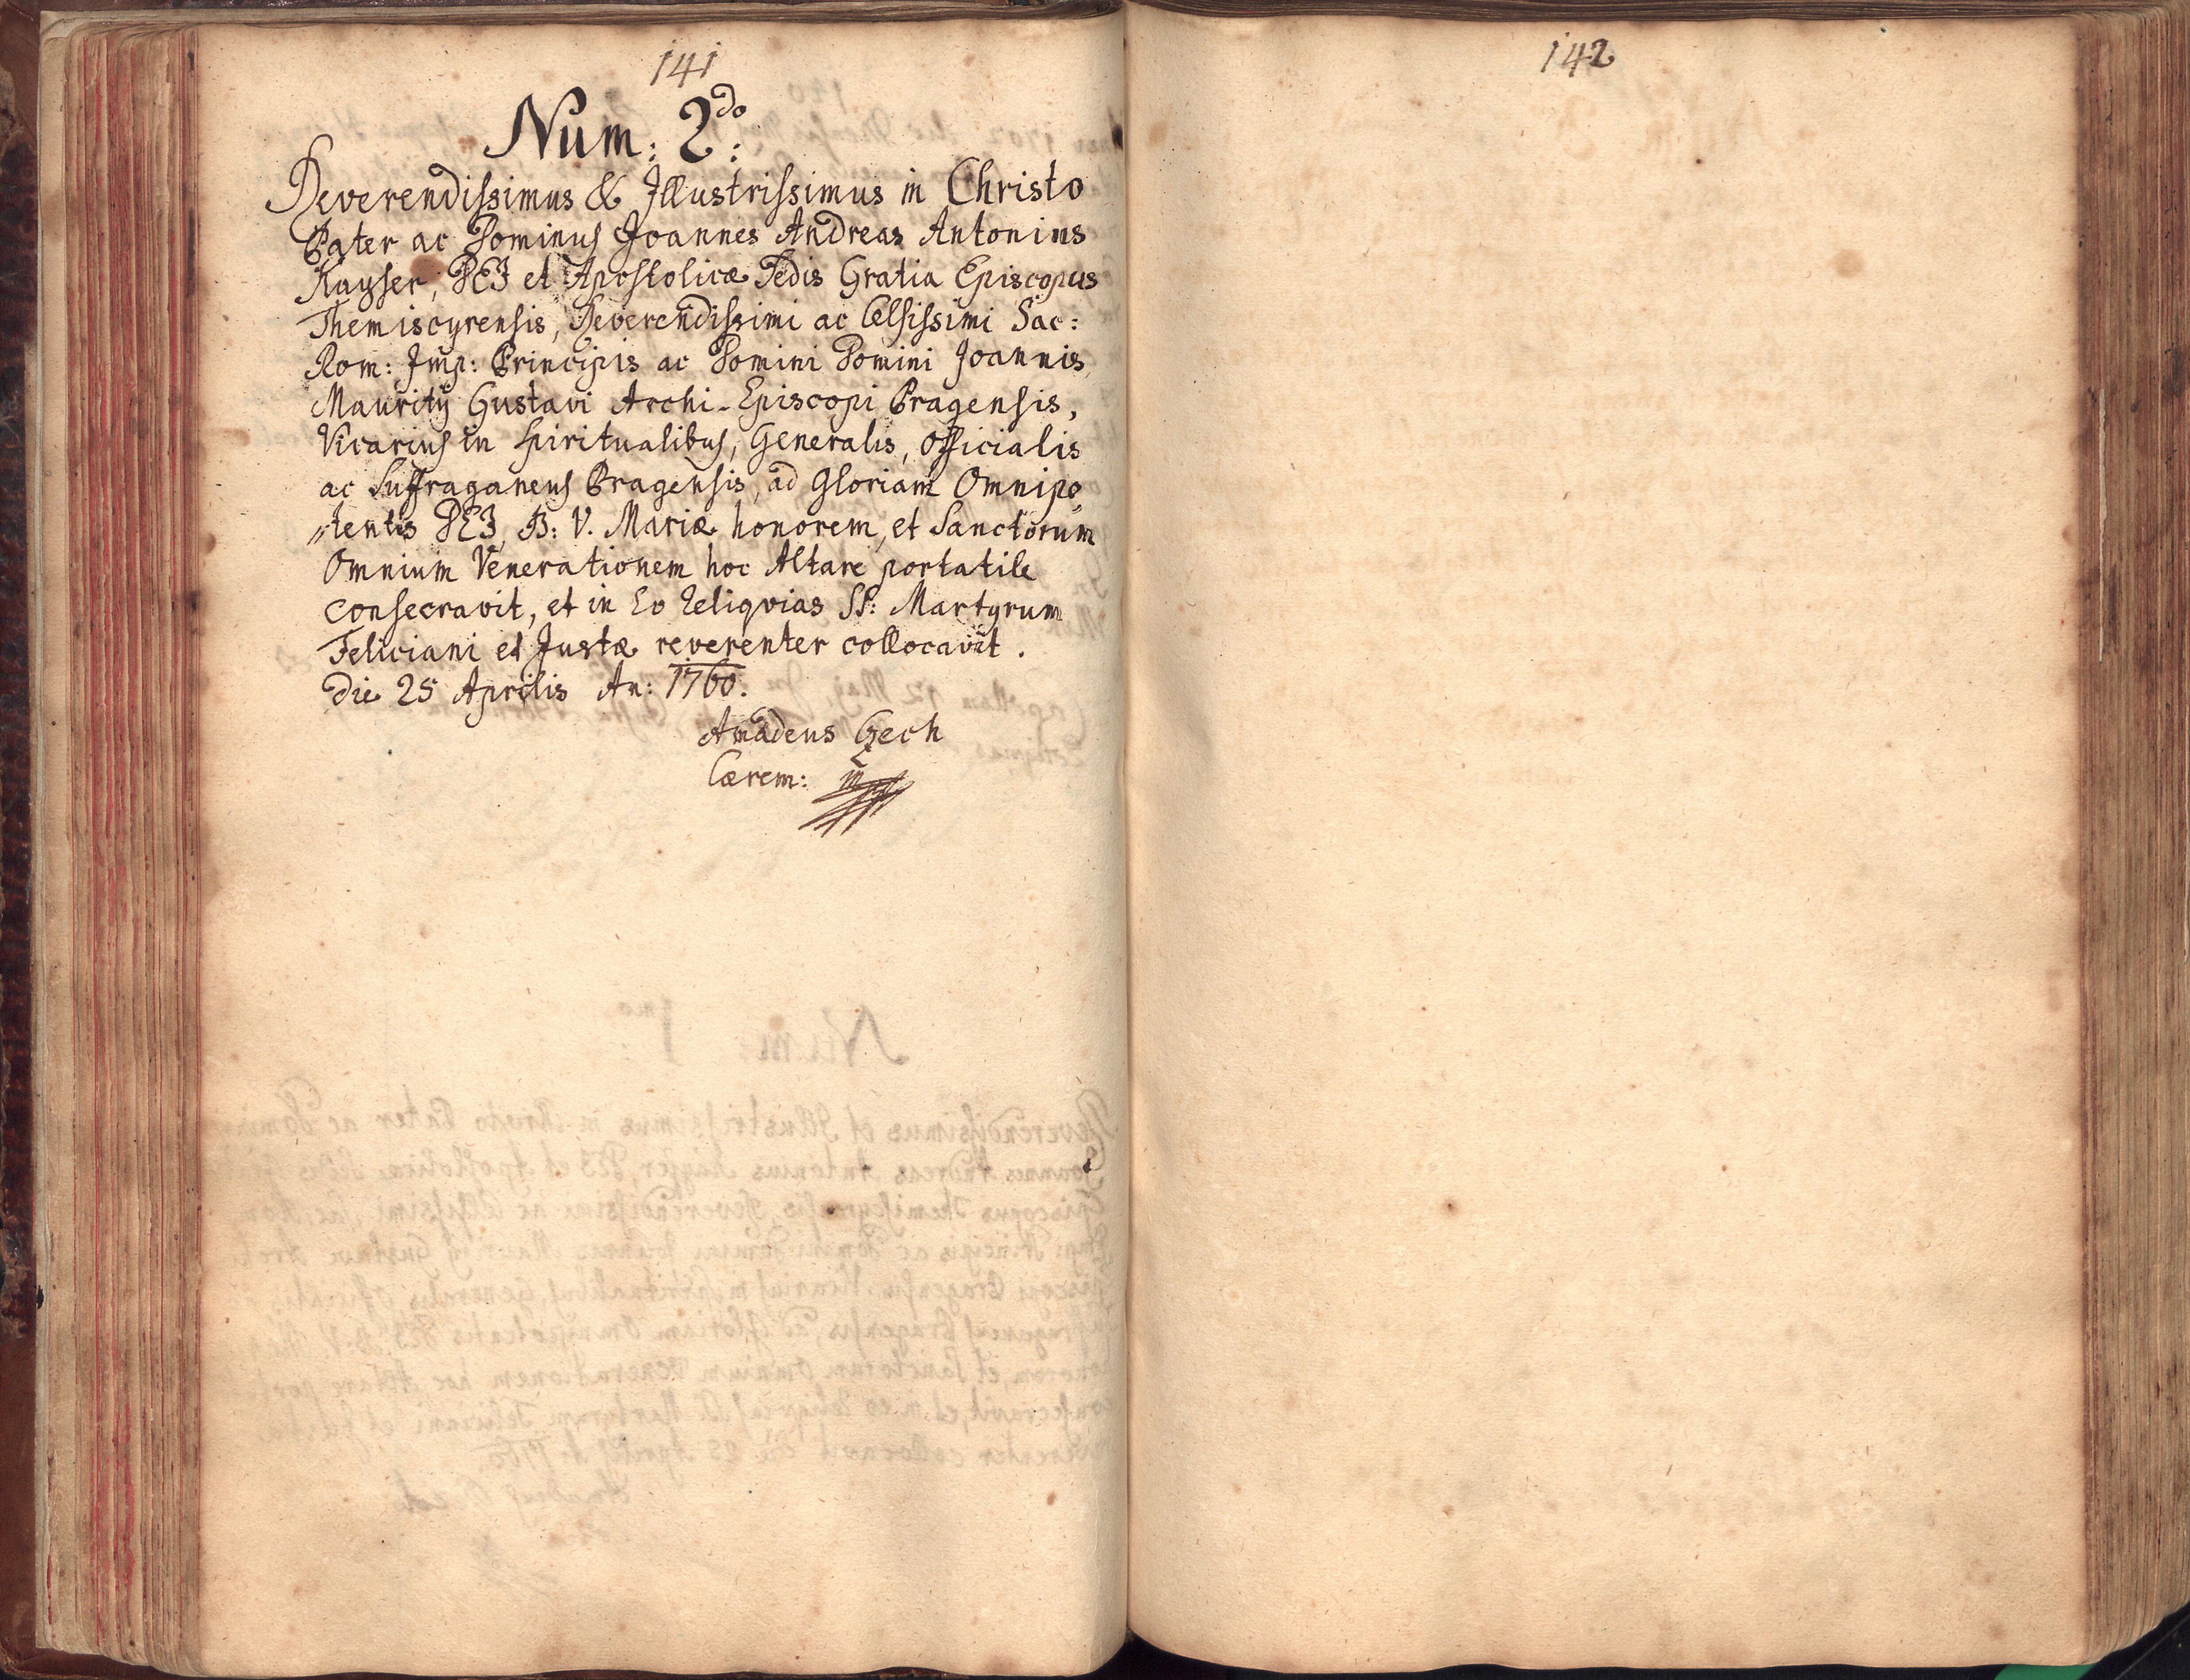 141
Num: 2do:
Reverendissimus & Illustrissimus in Christo
Pater ac Dominus Joannes Andreas Antonius
Kayser, DEI et Apostolicæ Sedis Gratia Episcopus
Themiscyrensis, Reverendissimi ac Celsissimi Sac:
Rom: Imp: Principis ac Domini Domini Joannis
Mauritij Gustavi Archi-Episcopi Pragensis,
Vicarius in Spiritualibus, Generalis, Officialis
ac Suffraganeus Pragensis, ad Gloriam Omnipo„
„tentis DEI, B: V. Mariæ honorem, et Sanctorum
Omnium Venerationem hoc Altare portatile
consecravit, et in Eo Reliqvias SS: Martyrum
Feliciani et Justæ reverenter collocavit.
Die 25 Aprilis An: 1760.
Amadeus Czech
Cærem:
142